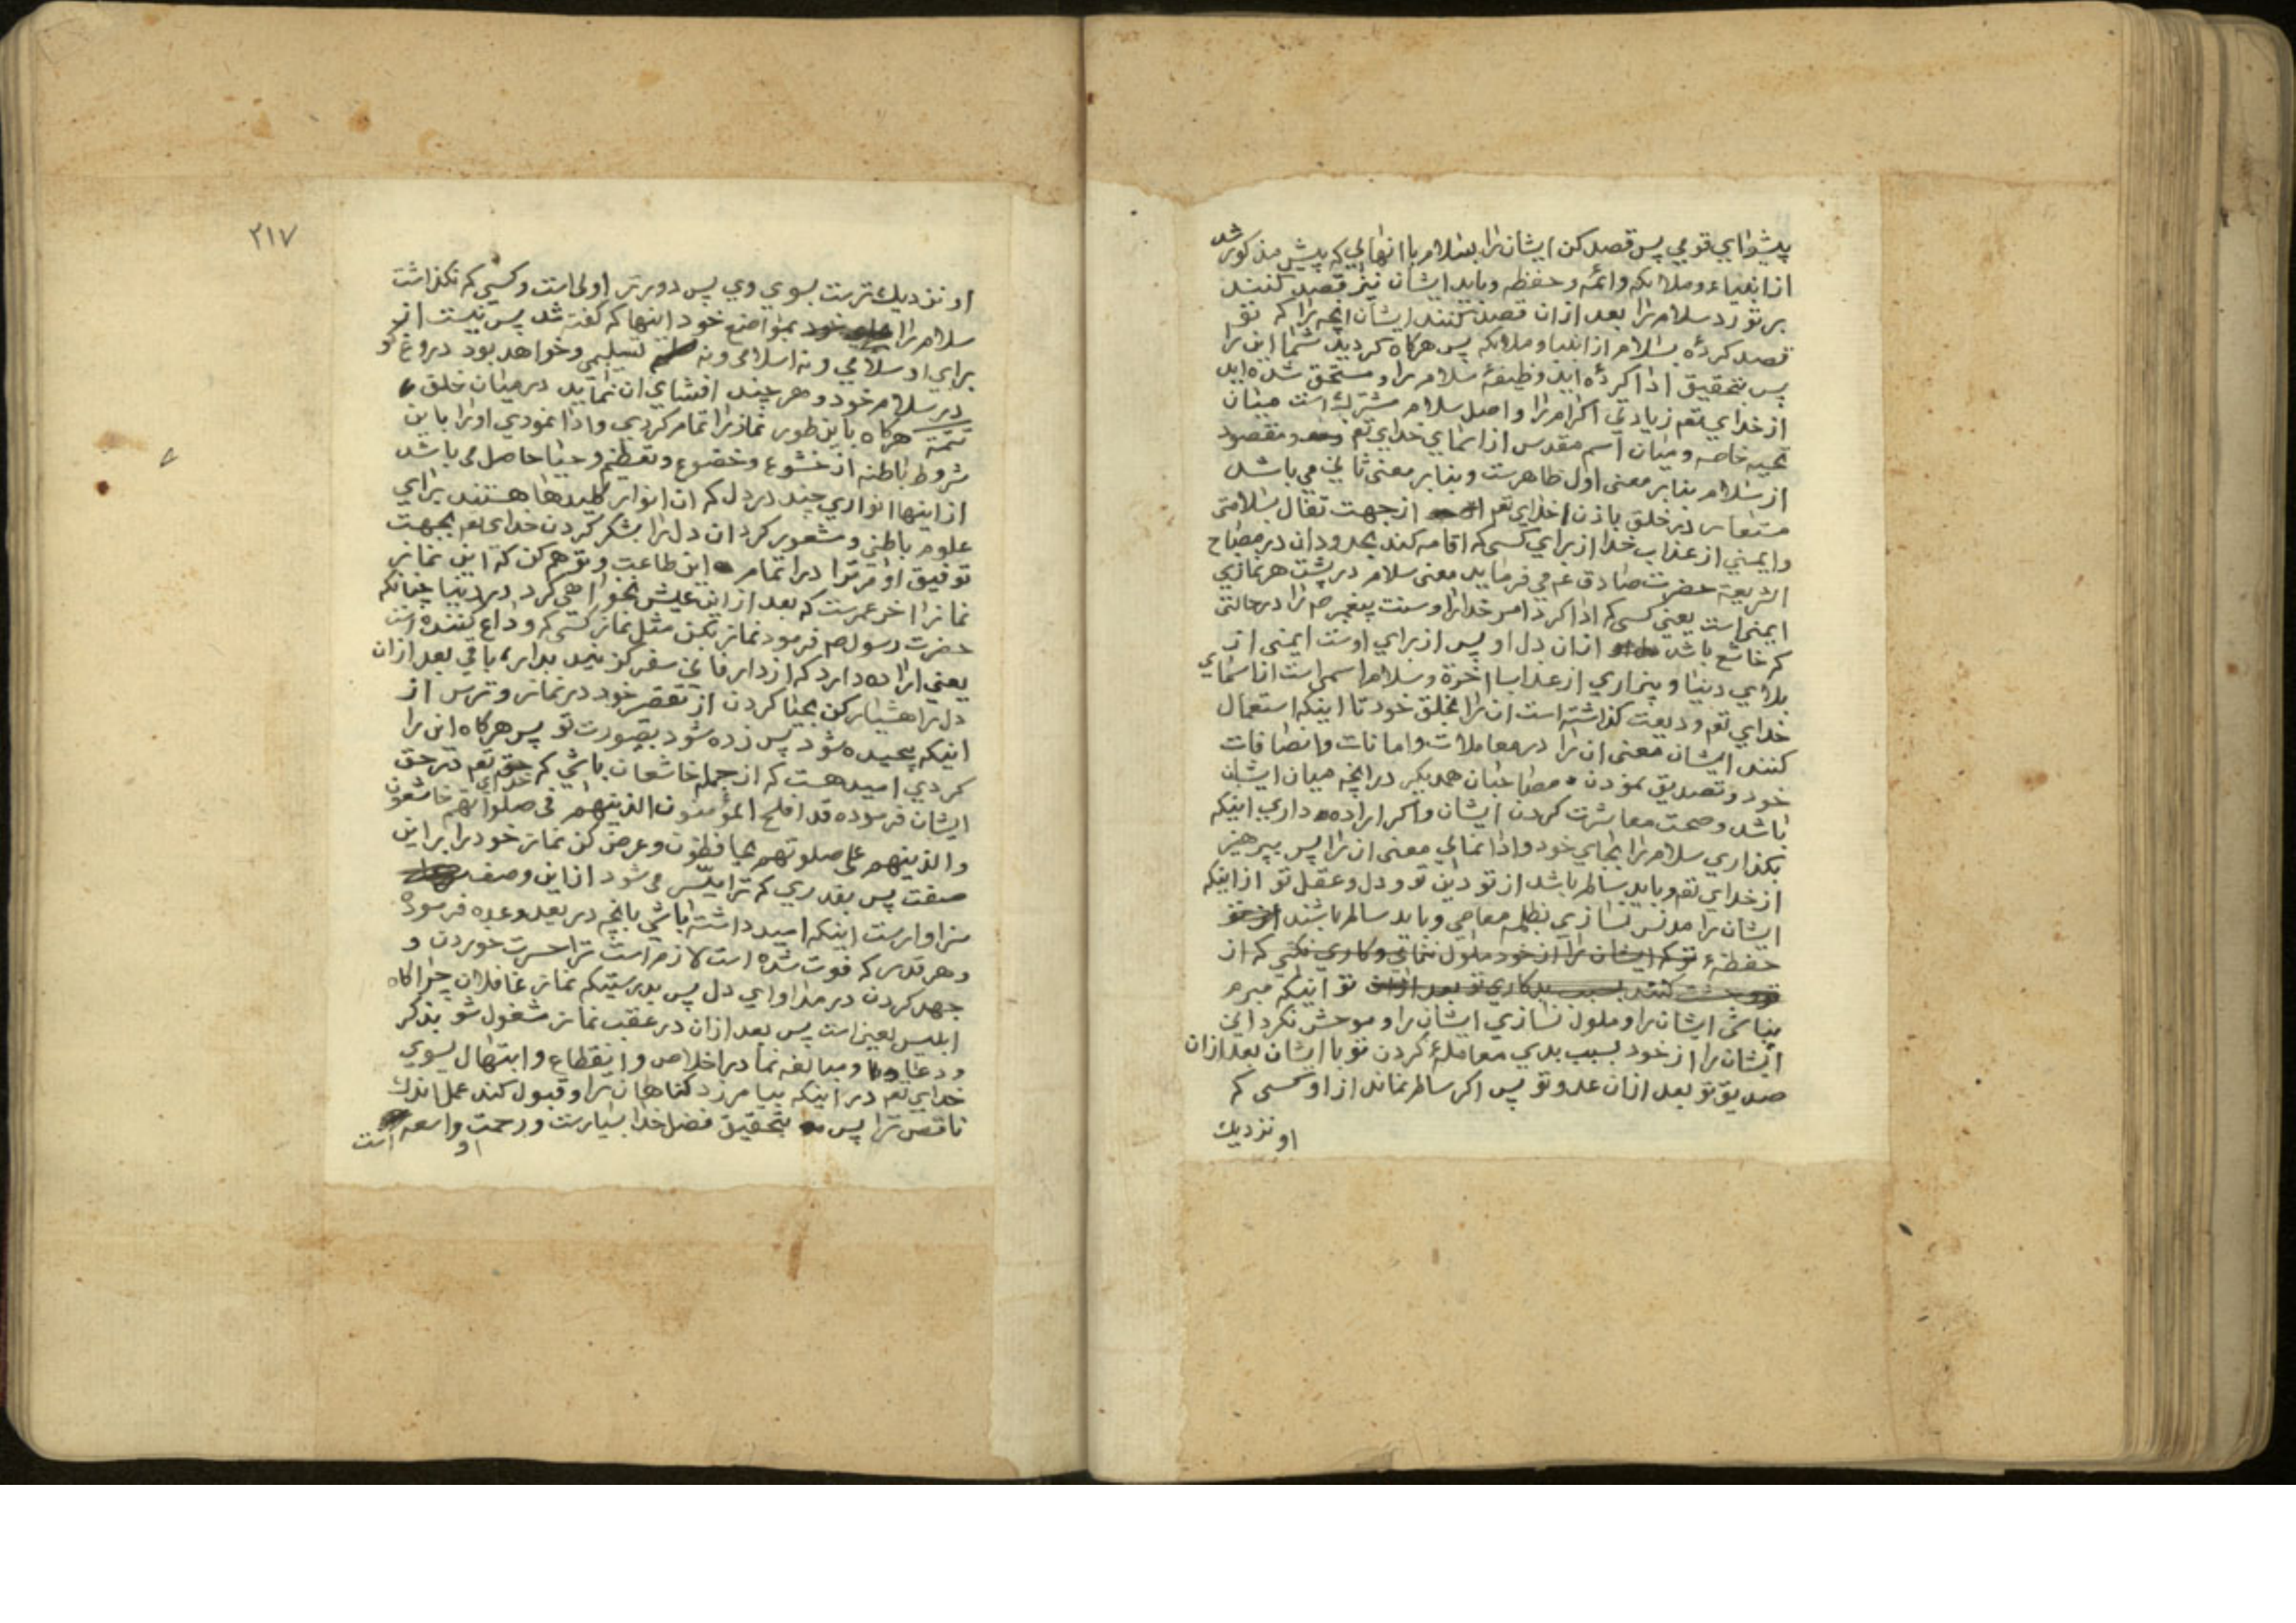 پیشوای قومی پس قصد کن ایشان را بسلام با انهایی که پیش مذکور شد
از انبیاء و ملائکه و ائمه و حفظه و باید ایشان نیز قصد کنند
بر تو رد سلام را بعد ازان قصد کنند ایشان انچه را که تو
قصد کردهٔ بسلام از انبیا و ملائکه پس هرکاه کردید شما این را
پس بتحقیق ادا کردهٔ اید وظیفهٔ سلام را و مستحق شده اید
از خدای تعم زیادتی اکرام را و اصل سلام مشترک است میان
تحیه خاصه و میان اسم مقدس از اسمای خدای تعم و مقصود
از سلام بنابر معنی اول ظاهرست و بنابر معنی ثانی می باشد
مستعار در خلق باذن خدای تعم از جهت تفال بسلامتی
و ایمنی از عذاب خدا از برای کسی که اقامه کند بحدود ان در مصباح
الشریعة حضرت صادق عم می فرماید معنی سلام در پشت هر نمازی
ایمنی است یعنی کسی که ادا کرد امر خدا را و سنت پیغمبر صم را در حالتی
که خاشع باشد ازان دل او پس از برای اوست ایمنی از
بلای دنیا و بیزاری از عذاب اخرة و سلام اسمی است از اسمای
خدای تعم ودیعت کذاشته است ان را بخلق خود تا اینکه استعمال
کنند ایشان معنی ان را در معاملات و امانات و انصافات
خود و تصدیق نمودن مصاحبان همدیکر در انچه میان ایشان
باشد و صحت معاشرت کردن ایشان و اکر اراده داری اینکه
بکذاری سلام را بجای خود و ادا نمائی معنی ان را پس بپرهیز
از خدای تعم و باید سالم باشد از تو دین تو و دل و عقل تو از اینکه
ایشان را مدنس نسازی بظلمه معاصی و باید سالم باشند از تو
حفظهٔ تو که ایشان را از خود ملول ننمائی و کاری نکنی که از
تو وحشت کنند بسبب بدکاری تو بعد ازان تو اینکه مبرم
نباشی ایشان را و ملول نسازی ایشان را و موحش نکردانی
ایشان را از خود بسبب بدی معاملهٔ کردن تو با ایشان بعد ازان
صدیق تو بعد ازان عدو تو پس اکر سالم نماند از او کسی که
او نزدیک
۲۱۷
او نزدیک ترست بسوی وی پس دورتر اولی است و کسی که نکذاشت
سلام را بمواضع خود اینها که کفته شد پس نیست از
برای او سلامی و نه اسلامی و نه تسلیمی و خواهد بود دروغ کو
در سلام خود و هر چند افشای ان نماید در میان خلق
تتمة هرکاه باین طور نماز را تمام کردی و ادا نمودی او را باین
شروط باطنه از خشوع و خضوع و تعظیم و حیا حاصل می باشد
از اینها انواری چند در دل که ان انوار کلیدها هستند برای
علوم باطنی و مشعور کردان دل را بشکر کردن خدای تعم بجهت
توفیق او مر ترا در اتمام این طاعت و توهم کن که این نماز
نماز اخر عمرست که بعد از این عیش نخواهی کرد در دنیا چنانکه
حضرت رسول صم فرمود نماز بکن مثل نماز کسی که وداع کننده است
یعنی اراده دارد که از دار فانی سفر کزیند بدار باقی بعد ازان
دل را هشیار کن بحیا کردن از تقصیر خود در نماز و ترس از
اینکه پیچیده شود پس زده شود بصورت تو پس هرکاه این را
کردی امید هست که از جمله خاشعان باشی که خدای تعم در حق
ایشان فرموده قد افلح المؤمنون الذینهم فی صلواتهم خاشعون
والذینهم علی صلوتهم یحافظون و عرض کن نماز خود را بر این
صفت پس بقدری که ترا میسر می شود از این وصف
سزاوارست اینکه امید داشته باشی بانچه در بعد وعده فرموده
و هر قدر که فوت شده است لازم است ترا حسرت خوردن و
جهد کردن در مداوای دل پس بدرستیکه نماز غافلان چراکاه
ابلیس لعین است پس بعد ازان در عقب نماز مشغول شو بذکر
و دعا و مبالغه نما در اخلاص و انقطاع و ابتهال بسوی
خدای تعم در اینکه بیامرزد کناهان را و قبول کند عمل اندک
ناقص ترا پس بتحقیق فضل خدا بسیارست و رحمت او واسعه است